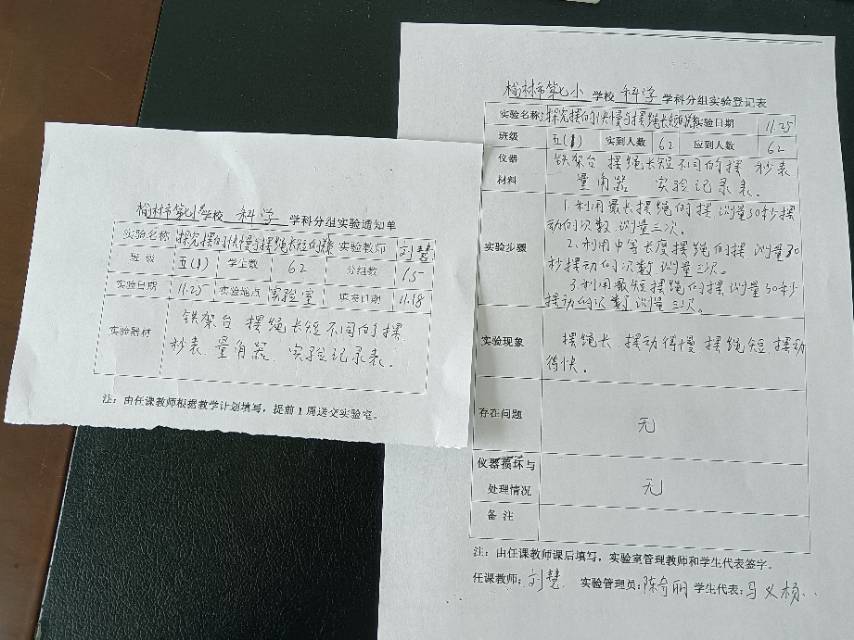 榆林市第七小学校 科学 学科分组实验通知单
实验名称 探究摆的快慢与摆绳长短的 实验教师 刘慧
班级 五(1) 学生数 62 分组数 15
实验日期 11.25 实验地点 实验室 填表日期 11.18
实验器材 铁架台 摆绳长短不同的摆
秒表 量角器 实验记录表。
注:由任课教师根据教学计划填写,提前1周送交实验室。
榆林市第七小 学校 科学 学科分组实验登记表
实验名称 探究摆的快慢与摆绳长短 实验日期 11.25
班级 五(1) 实到人数 62 应到人数 62
仪器 铁架台 摆绳长短不同的摆 秒表
材料 量角器 实验记录表。
实验步骤
1.利用最长摆绳的摆测量30秒摆
动的次数 测量三次。
2.利用中等长度摆绳的摆 测量30
秒摆动的次数 测量三次。
3.利用最短摆绳的摆测量30秒
摆动的次数 测量三次。
实验现象 摆绳长 摆动得慢 摆绳短 摆动
得快。
存在问题 无
仪器损坏与
处理情况 无
备注
注:由任课教师课后填写,实验室管理教师和学生代表签字。
任课教师:刘慧 实验管理员:陈奇丽 学生代表:马义杨